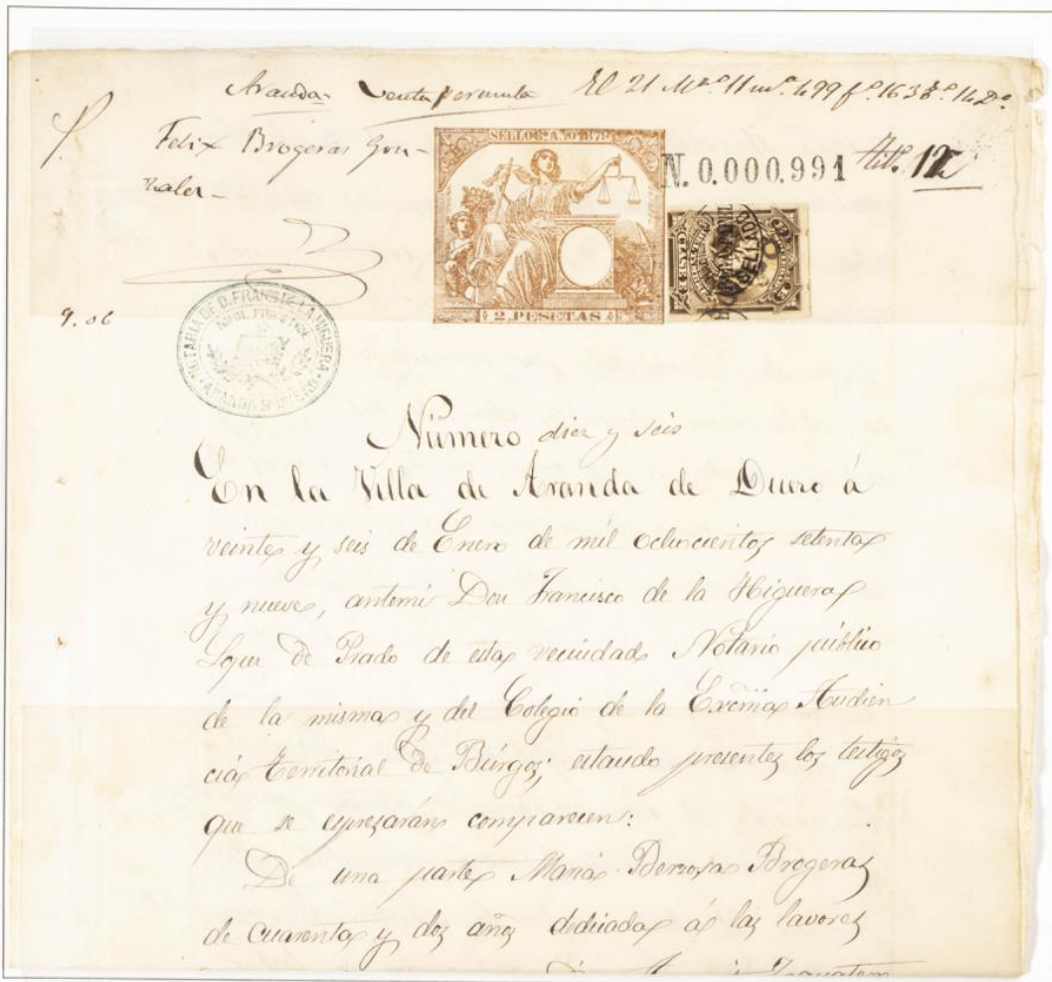 Aranda - Venta permuta El 21
Felix Brogeras Gon-
zalez -
SELLO 8º AÑO 1879
N. 0.000.991
2 PESETAS
9.06
NOTARIA DE D. FRANCO DE LA HIGUERA
ARANDA DE DUERO
Número diez y seis
En la Villa de Aranda de Duero á
veinte y seis de Enero de mil ochocientos setenta
y nueve, antemi Don Francisco de la Higuera
Lopez de Prado de esta vecindad Notario público
de la misma y del Colegio de la Excma Audien
cia Territorial de Búrgos; estando presentes los testigos
que se espresarán comparecen:
De una parte Maria Berzosa Brogeras
de cuarenta y dos años dedicada á las lavores